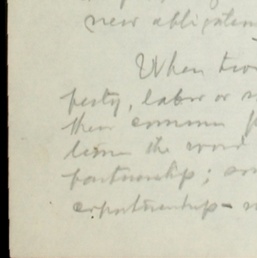 new obligation
When two
perty, labor or s
their common p
the word
partnership; so
copartnership –